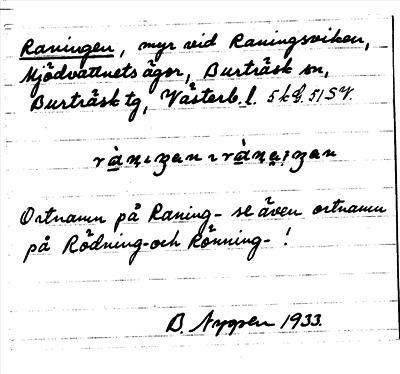 Raningen, myr vid Raningsviken,
Mjödvattnets ägor, Burträsk sn,
Burträsk tg, Västerb. l. 5 k
Ortnamn på Raning- se även ortnamn
på Rödning- och Rönning- !
B. 1933.